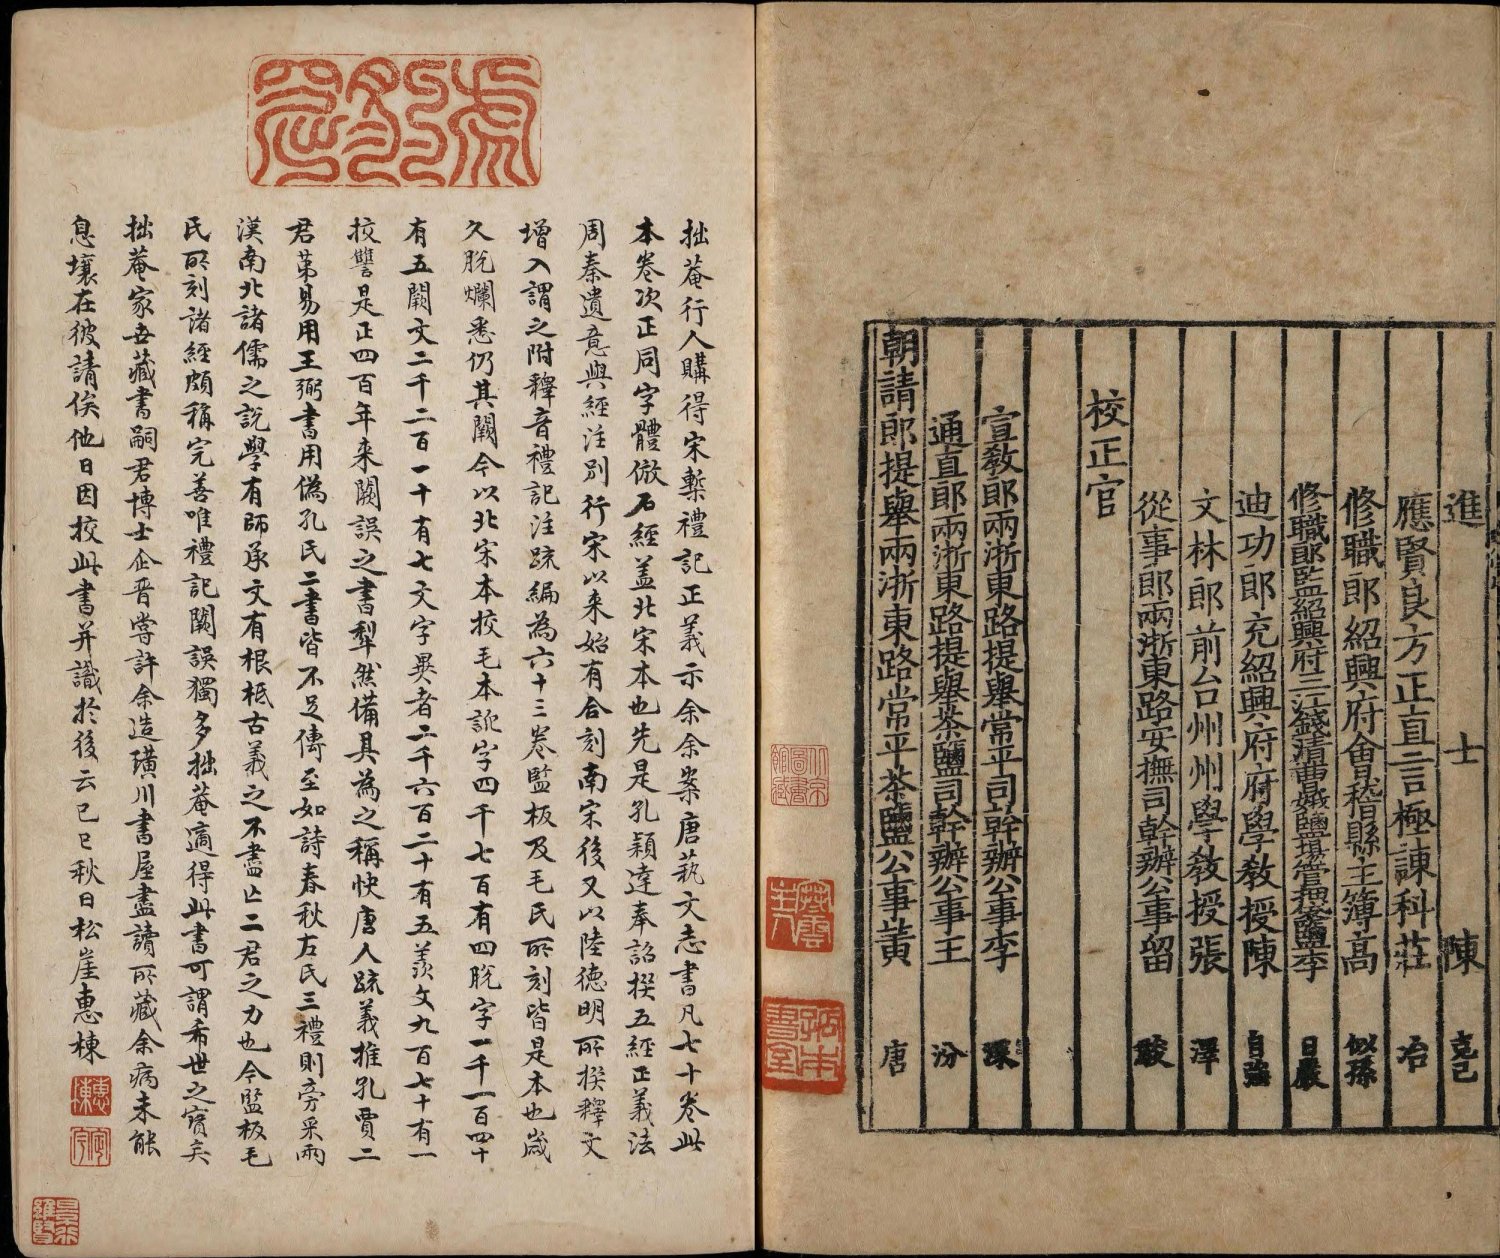 進士陳克己
應賢良方正直言極諫科莊冶
修職郎紹興府會稽縣主簿高似孫
修職郎監紹興府三江錢清曹娥鹽場管押袋鹽李日嚴
迪功郎充紹興府府學教授陳自強
文林郎前台州州學教授張澤
從事郎兩浙東路安撫司幹辦公事留駿
校正官
宣教郎兩浙東路提舉常平司幹辦公事李深
通直郎兩浙東路提舉茶鹽司幹辦公事王汾
朝請郎提舉兩浙東路常平茶鹽公事黃唐
拙菴行人購得宋槧禮記正義示余余案唐藝文志書凡七十卷此
本卷次正同字體倣石經盖北宋本也先是孔穎達奉詔撰五經正義法
周秦遺意與經注別行宋以来始有合刻南宋後又以陸德明所撰釋文
增入謂之附釋音禮記注疏編為六十三卷監板及毛氏所刻皆是本也歲
久脫爛悉仍其闕今以北宋本挍毛本訛字四千七百有四脫字一千一百四十
有五闕文二千二百一十有七文字異者二千六百二十有五羡文九百七十有一
挍讐是正四百年来闕誤之書犁然備具為之稱快唐人疏義推孔賈二
君苐易用王弼書用偽孔氏二書皆不足傳至如詩春秋左氏三禮則旁采兩
漢南北諸儒之說學有師承文有根柢古義之不盡亡二君之力也今監板毛
氏所刻諸經頗稱完善唯禮記闕誤獨多拙菴適得此書可謂希世之寶矣
拙菴家世藏書嗣君博士企晋嘗許余造璜川書屋盡讀所藏余病未能
息壤在彼請俟他日因挍此書并識於後云己巳秋日松崖惠棟
惠棟